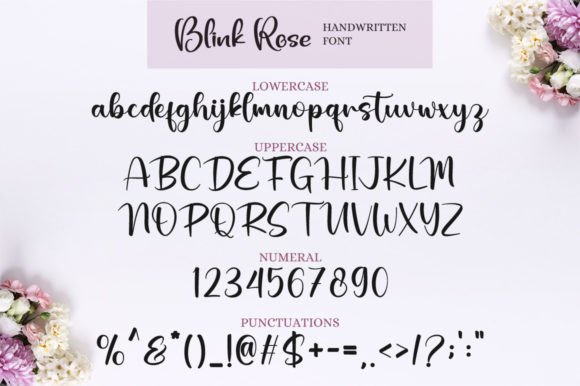 Blink Rose
HANDWRITTEN
FONT
LOWERCASE
abcdefghijklmnopqrstuvwxyz
UPPERCASE
ABCDEFGHIJKLM
NOPQRSTUVWXYZ
NUMERAL
1234567890
PUNCTUATIONS
%^&*()_!@#$+-=,.<>/?;':"